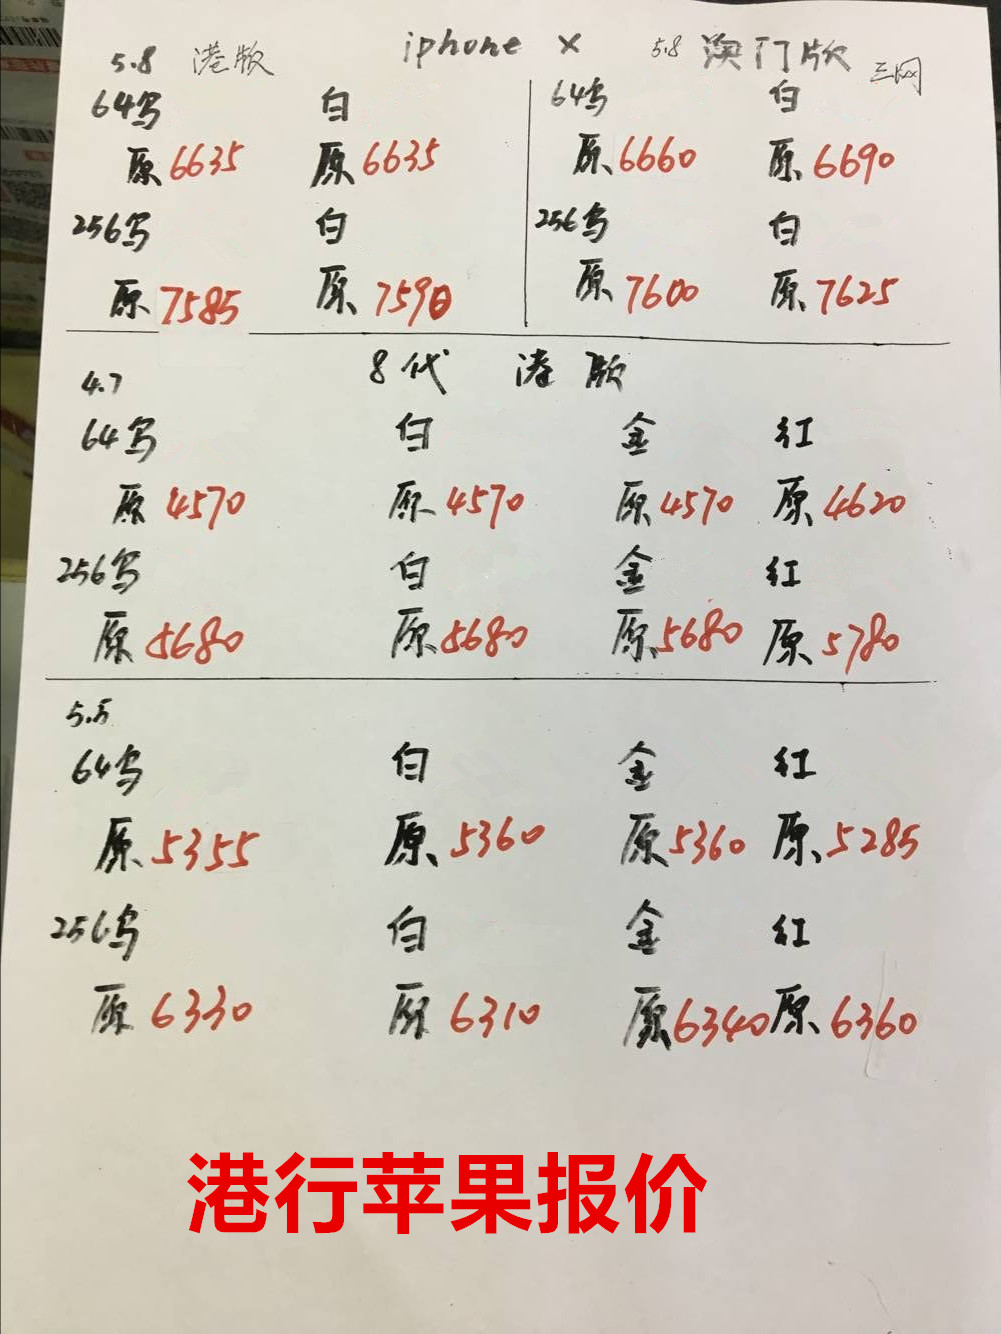 iphone X
5.8 港版
5.8 澳门版 三网
64乌 白 64乌 白
原 6635 原 6635 原 6660 原 6690
256乌 白 256乌 白
原 7585 原 7590 原 7600 原 7625
4.7 8代 港版
64乌 白 金 红
原 4570 原 4570 原 4570 原 4620
256乌 白 金 红
原 5680 原 5680 原 5680 原 5780
5.5
64乌 白 金 红
原 5355 原 5360 原 5360 原 5285
256乌 白 金 红
原 6330 原 6310 原 6340 原 6360
港行苹果报价